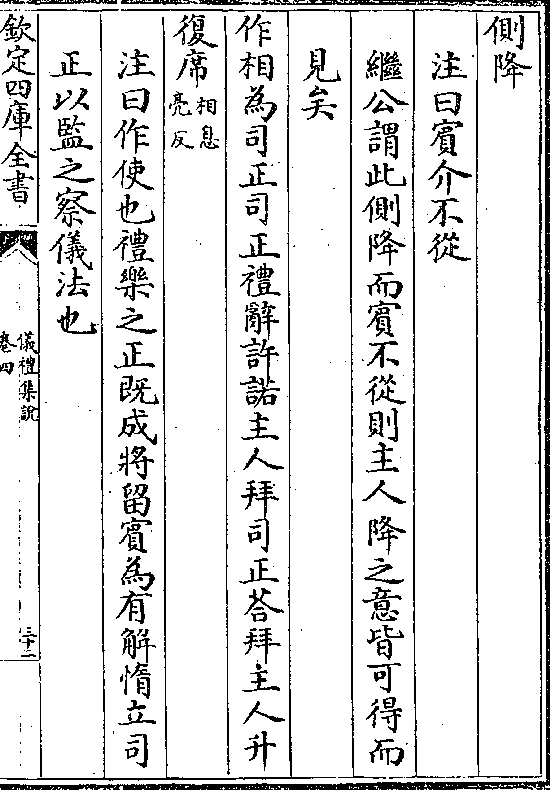 側降
注曰賓介不從
繼公謂此側降而賓不從則主人降之意皆可得而
見矣
作相為司正司正禮辭許諾主人拜司正荅拜主人升
復席相息亮反
注曰作使也禮樂之正既成將留賓為有解惰立司
正以監之察儀法也
欽定四庫全書
儀禮集說
卷四
三十二